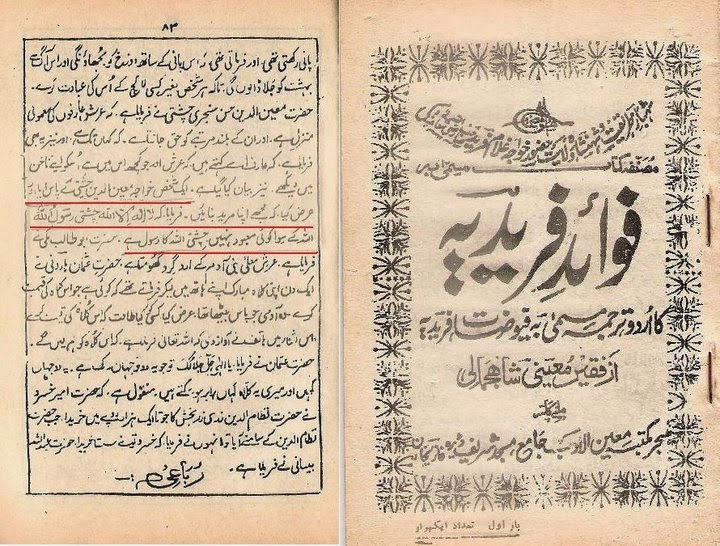 ۸۳
پانی رکھتی تھی۔ اور فرماتی تھی۔ کہ اس پانی کے ساتھ دوزخ کو بجھاؤنگی اور اس آگ سے
بہشت کو جلا ڈالوں گی۔ تاکہ ہر شخص بغیر کسی لالچ کے اُس کی عبادت کرے۔
حضرت معین الدین حسن سنجری چشتی نے فرمایا ہے۔ کہ عرش عارفوں کی معمولی
منزل ہے۔ اور ان کے بلند مرتبے کو حق جانتا ہے۔ کہ کہاں تک ہے اور نیز یہ بھی
فرمایا ہے کہ عارف اسے کہتے ہیں۔ کہ عرش اور جو کچھ اس میں ہے کو اپنے ناخن
میں دیکھے۔ نیز بیان کیا گیا ہے۔ ایک شخص خواجہ معین الدین چشتی کے پاس آیا اور
عرض کیا۔ کہ مجھے اپنا مرید بنائیں۔ فرمایا کہ لا الہ الا اللہ چشتی رسول اللہ
اللہ کے سوا کوئی معبود نہیں چشتی اللہ کا رسول ہے۔ حضرت بو طالب مکی نے
فرمایا ہے۔ عرش معلی بنی آدم کے ارد گرد گھومتا ہے۔ حضرت عثمان ہارونی نے
ایک دن اپنی کلاہ مبارک اپنے ہاتھ میں لیکر فرماتے تھے کہ کوئی ہے جو اس کلاہ کی قیمت
دے۔ ایک آدمی جو پاس بیٹھا تھا۔ عرض کیا کسی کی کیا طاقت کہ اس کلاہ کی قیمت دے
اس اثنا میں ہاتف نے آواز دی کہ اللہ تعالی فرماتا ہے۔ کہ اس کلاہ کو ہم لیں گے۔
حضرت عثمان نے فرمایا۔ یا الہی مانگ تو جو یہ دو جہان تک ہے۔ یہ دو جہاں
کہاں اور میری یہ کلاہ کہاں برابر ہو سکتے ہیں۔ منقول ہے۔ کہ حضرت امیر خسرو
نے حضرت نظام الدین زری زر بخش کا جوتا ایک ہزار روپے میں خریدا جب حضرت
نظام الدین کے سامنے آیا تو انہوں نے فرمایا کہ خسرو تو نے سستا خریدا حضرت عبداللہ
بیانی نے فرمایا ہے۔
رباعی
مصنفہ کتاب
فوائد فریدیہ
کا اُردو ترجمہ مسمیٰ بہ فیوضات فریدیہ
از فقیر معینی شاہجمالی
ملنے کا پتہ
مکتبہ معین الادب جامع مسجد شریف ڈیرہ غازیخان
بار اول تعداد ایکہزار